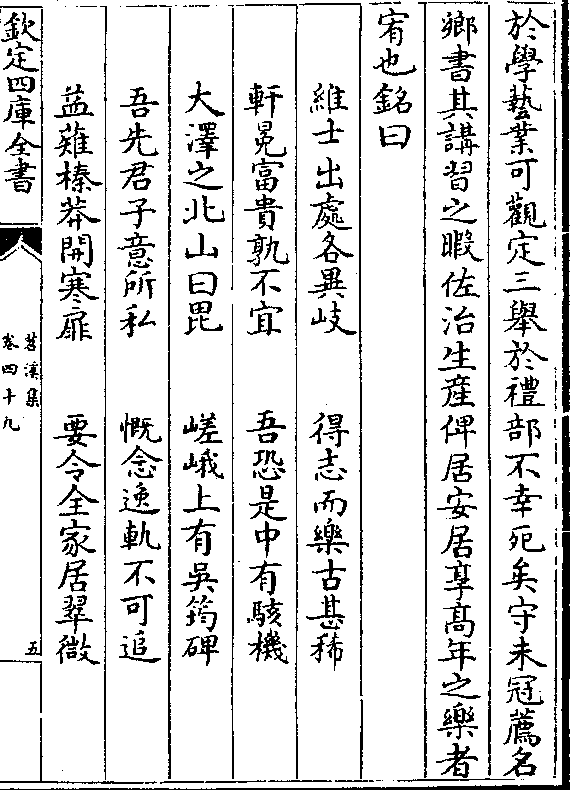 於學藝業可觀定三舉於禮部不幸死矣守未冠薦名
鄉書其講習之暇佐治生産俾居安居享髙年之樂者
宥也銘曰
維士出處各異岐　得志而樂古甚稀
軒冕富貴孰不宜　吾恐是中有駭機
大澤之北山曰毘　嵯峨上有吳筠碑
吾先君子意所私　慨念逸軌不可追
葢薙榛莽開寒扉　要令全家居翠微
欽定四庫全書
苕溪集
卷四十九
五